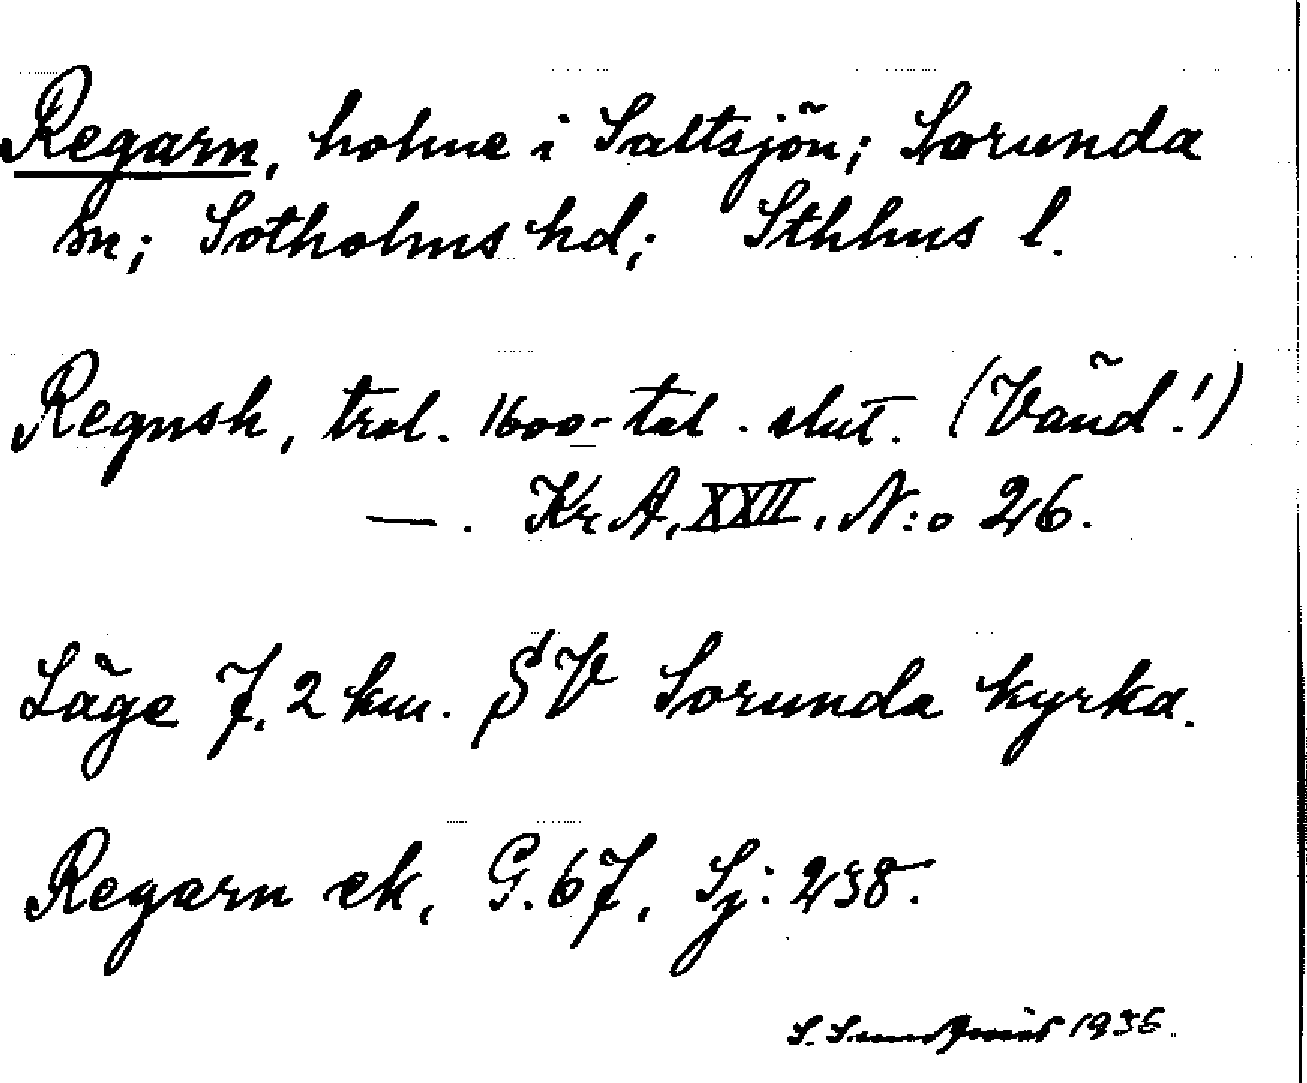 Regarn, holme i Saltsjön; Sorunda
sn; Sotholms hd; Sthlms l.
Regnsk, trol. 1600-tal. slut. (Vänd!)
—. Kr. A, XXII. N:o 26.
Läge 7,2 km. SV Sorunda kyrka.
Regarn ek, G.67, Sj: 238.
S. 1936.